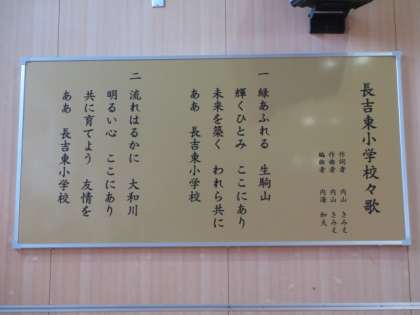 長吉東小学校々歌
作詞者 内山 きみえ
作曲者 内山 きみえ
編曲者 内海 和夫
一 緑あふれる 生駒山
輝くひとみ ここにあり
未来を築く われら共に
ああ 長吉東小学校
二 流れはるかに 大和川
明るい心 ここにあり
共に育てよう 友情を
ああ 長吉東小学校